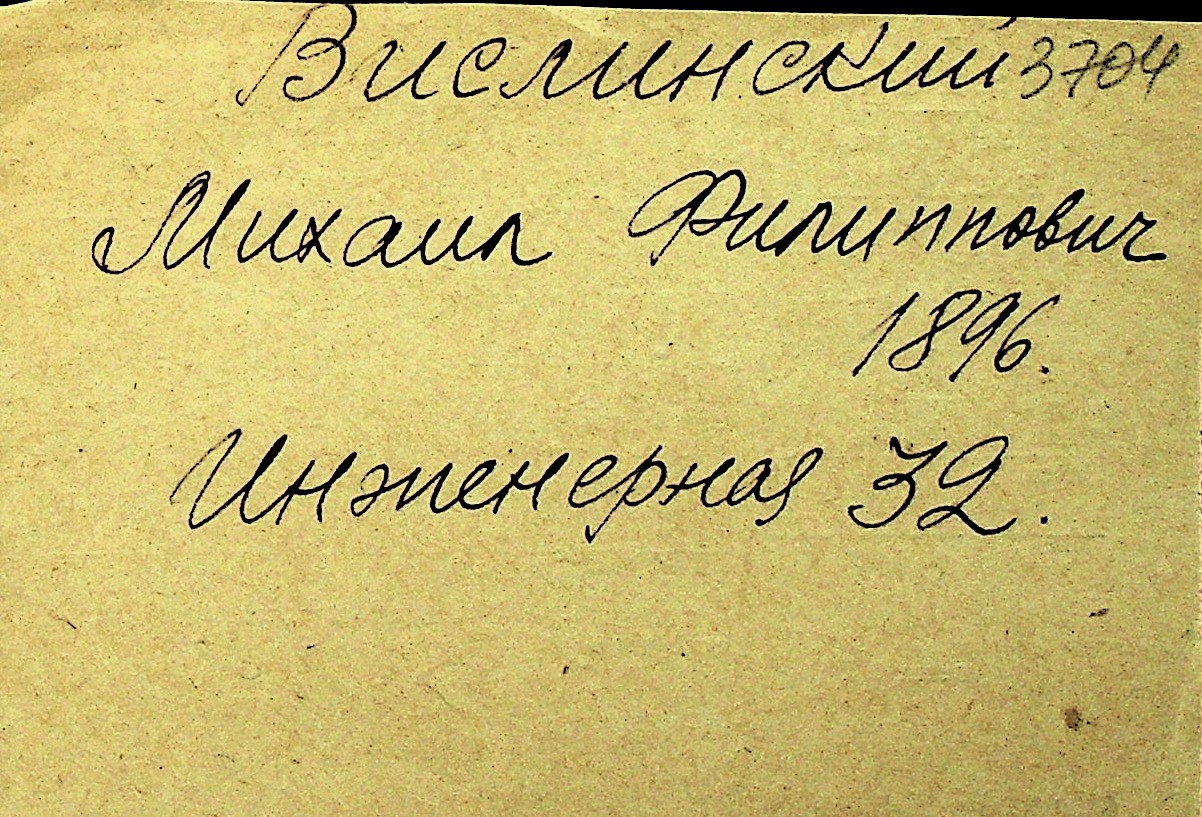 Вислинский 3704
Михаил Филиппович
1896.
Инженерная 32.